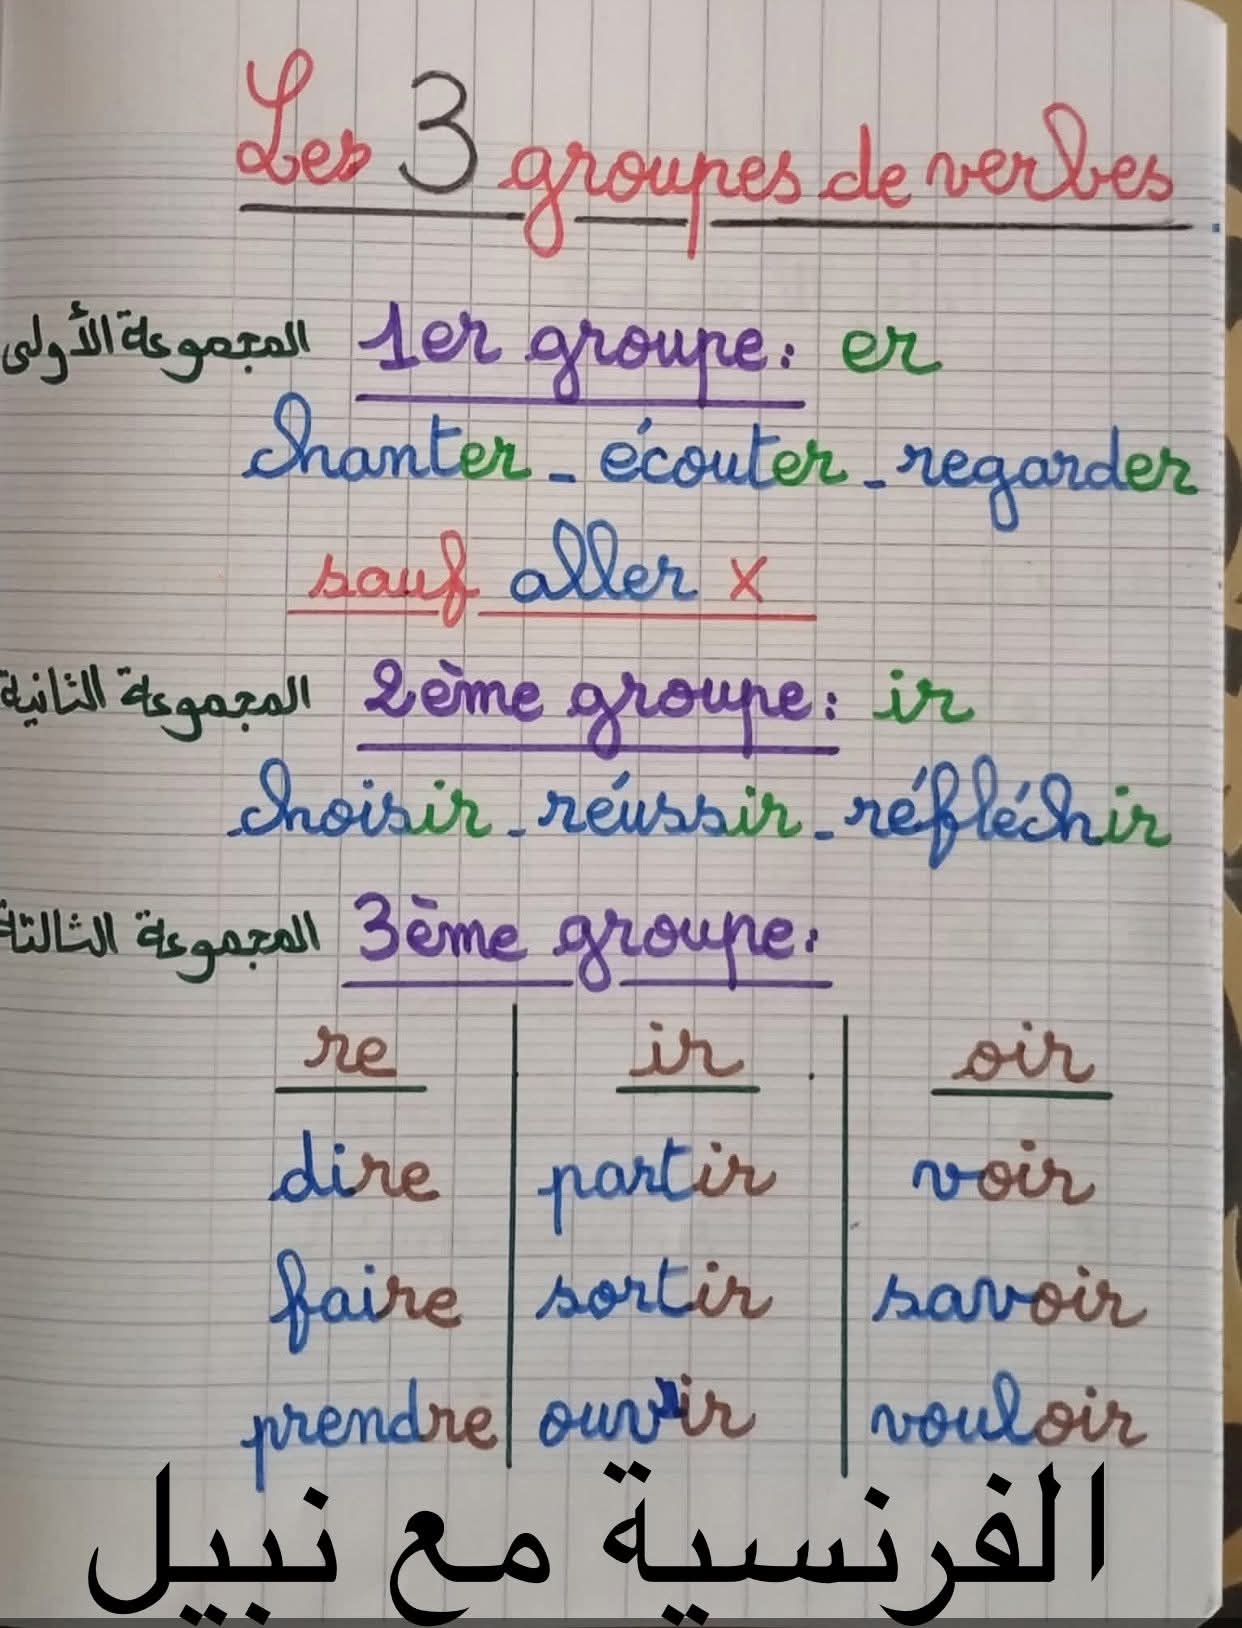 Les 3 groupes de verbes
المجموعة الأولى 1er groupe: er
chanter - écouter - regarder
sauf aller x
المجموعة الثانية 2ème groupe: ir
choisir - réussir - réfléchir
المجموعة الثالثة 3ème groupe:
re ir oir
dire partir voir
faire sortir savoir
prendre ouvrir vouloir
الفرنسية مع نبيل